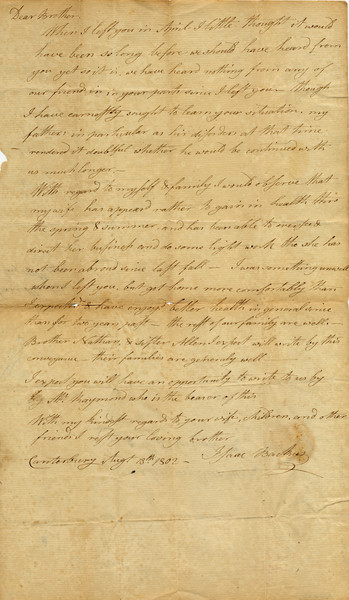 Dear Brother
When I left you in April I little thought it would
have been so long before we should have heard from
you yet so it is, we have heard nothing from any of
our friends in your parts since I left you – though
I have earnestly sought to learn your situation, my
fathers in particular as his disorders at that time
rendered it doubtful whether he would be continued with
us much longer. –
With regard to myself & family I would observe that
my wife has appeard rather to gain in health this
the spring & summer, and has been able to oversee &
direct her business and do some light work tho she has
not been abroad since last fall – I was something unwell
when I left you, but got home more comfortably than
I expected & have enjoyd better health in general since
than for two years past – the rest of our family are well –
Brother Nathan, & sister Allen I expect will write by this
conveyance – their families are generally well –
I expect you will have an opportunity to write to us by
by Mr. Raymond who is the bearer of this
With my kindest regards to your wife, children, and other
friends I rest your loving brother
Canterbury Augt 18th 1802 – Isaac Backus